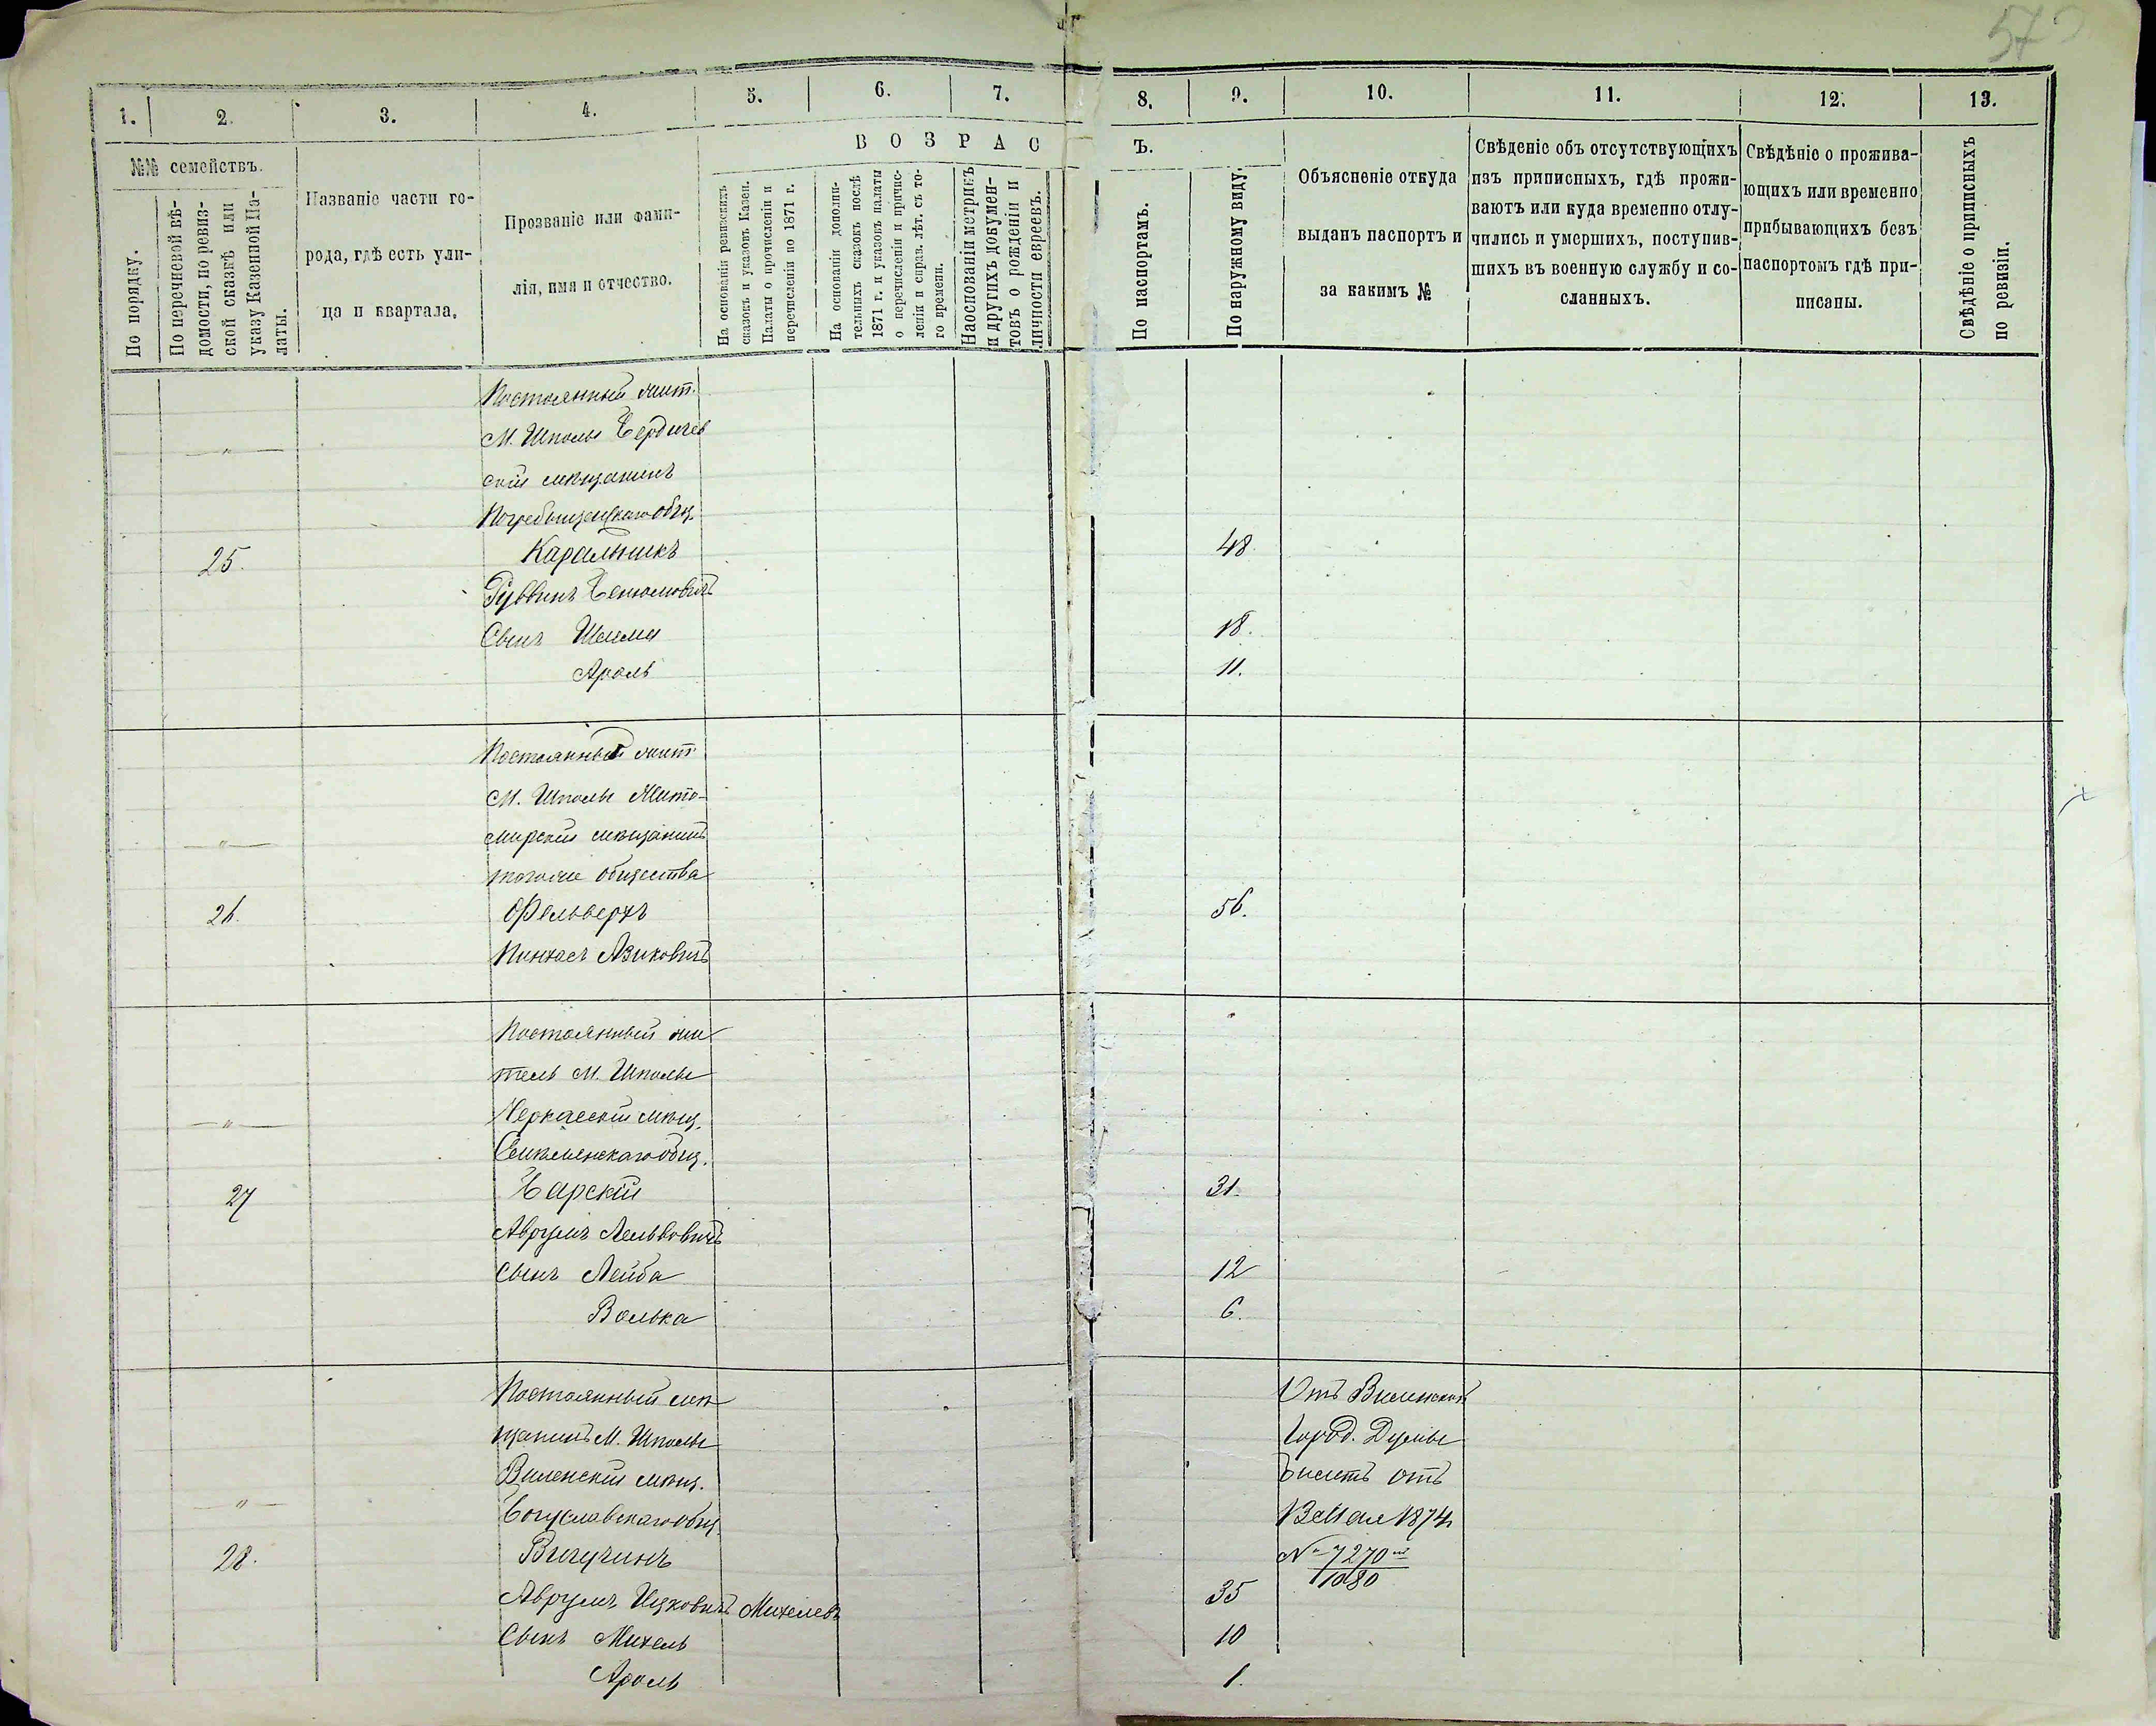 573
1. 2. 3. 4. 5. 6. 7. 8. 9. 10. 11. 12. 13.
№№ семействъ.
По порядку.
По перечневой вѣ-
домости, по ревиз-
ской сказкѣ или
указу Казенной Па-
латы.
Названіе части го-
рода, гдѣ есть ули-
ца и квартала.
Прозваніе или фами-
лія, имя и отчество.
ВОЗРАС
Ъ.
На основаніи ревизскихъ
сказокъ и указовъ Казен.
Палаты о причисленіи и
перечисленіи по 1871 г.
На основаніи дополни-
тельныхъ сказокъ послѣ
1871 г. и указовъ палаты
о перечисленіи и причис-
леніи и справ. лѣт. съ то-
го времени.
На основаніи метрикъ
и другихъ докумен-
товъ о рожденіи и
личности евреевъ.
По паспортамъ.
По наружному виду.
Объясненіе откуда
выданъ паспортъ и
за какимъ №
Свѣденіе объ отсутствующихъ
изъ приписныхъ, гдѣ прожи-
ваютъ или куда временно отлу-
чились и умершихъ, поступив-
шихъ въ военную службу и со-
сланныхъ.
Свѣдѣніе о прожива-
ющихъ или временно
прибывающихъ безъ
паспортомъ гдѣ при-
писаны.
Свѣдѣніе о приписныхъ
по ревизіи.
Постоянный жит.
М. Шполы Бердичев
— " —
скій мѣщанинъ
Погребыщенскаго общ.
25. Каральникъ 48
Рувинъ Беньюмовичъ
Сынъ Шлима 18.
Ароль 11.
Постоянный жит
М. Шполы Жито-
— " — мирскій мѣщанинъ
тогоже общества
26. Фельверхъ 56.
Пинхас Азиковичъ
Постоянный жи
тель М. Шполы
— " — Черкасскій мѣщ.
Смѣлянскаго общ.
27 Барскій 31.
Аврумъ Лейбовичъ
Сынъ Лейба 12
Волька 6.
Постоянный мѣ
щанинъ М. Шполы
Виленскій мѣщ.
— " — Богуславскаго общ.
28. Вигучинъ
Аврумъ Ицковичъ Михелевъ 35
Сынъ Михель 10
Ароль 1.
Отъ Виленской
Город. Думы
билетъ отъ
13 Мая 1874
№ 7270
1080